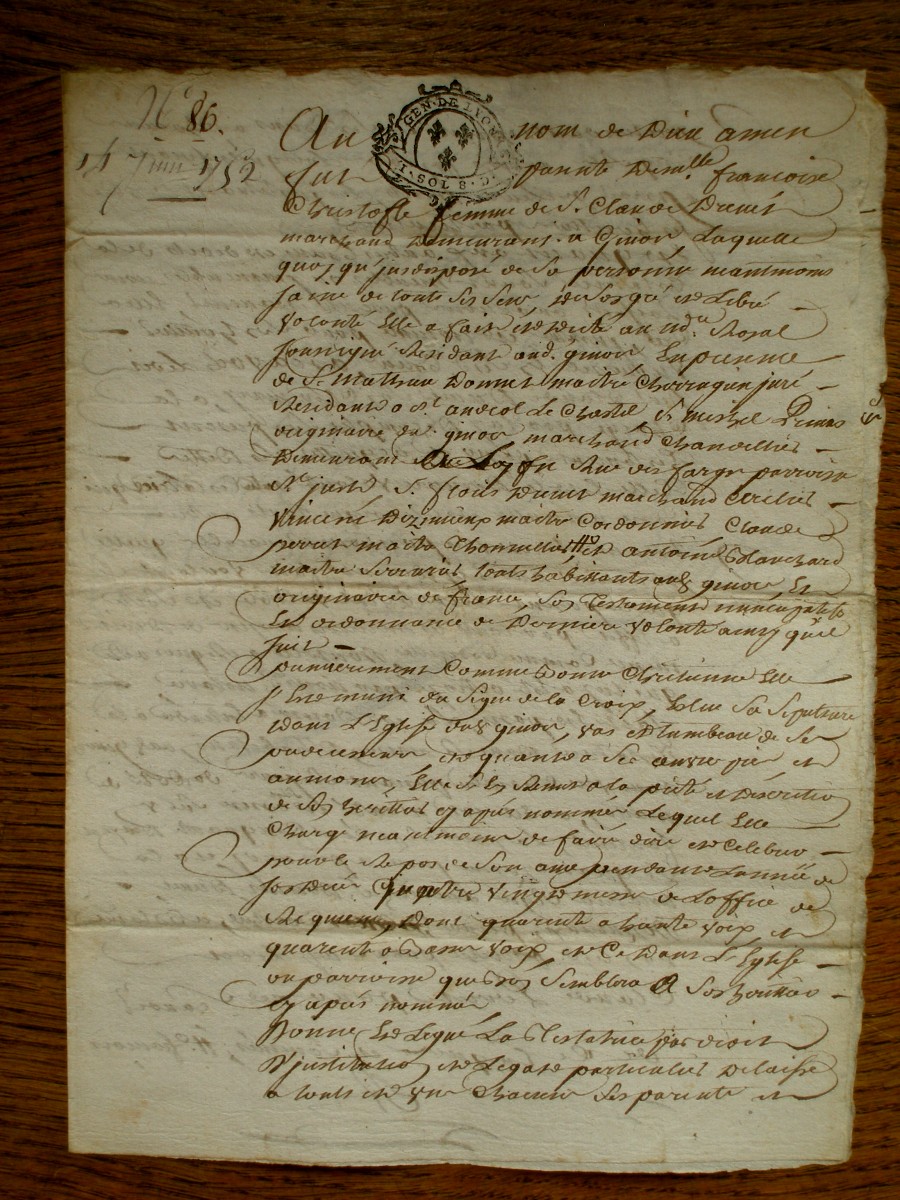 N.° 86.
14 Juin 1752
GEN. DE LYON
1. SOL 8. D.
Au nom de Dieu amen
fut presente Dem.lle francoise
Christofle femme de S.r Claude
marchand demeurant a Givor, Laquelle
quoy qu'indisposé de sa personne neantmoins
saine de tous ses sens, de son gré et Libre
volonté Elle a fait et dicté au no.re Royal
soussigné Residant aud. givor En presence
de S.r Mathieu maitre Chirurgien juré
Residant a S.t andeol Le Chatel S.r michel
originaire de givor marchand Chandellier
Demeurant a Lyon Rue des farges parroisse
S.t just S.r marchand
Vincent maitre Cordonnier Claude
maitre et antoine Blanchard
maitre Serrurier, touts habitants aud. givor, Et
originaires de france, son Testament nuncupatif
Et ordonnance de Derniere volonté ainsy qu'il
suit
premierement Comme bonne Chretienne Elle
s'est munie du Signe de la Croix, Elue Sa Sepulture
dans L'Eglise dud. givor, vas et tumbeau de Ses
predecesseurs et quant a Ses œuvres pies et
aumones, Elle s'En Remet a la pieté et discretion
de Son heritier cy apres nommé Lequel Elle
Charge neantmoins de faire dire et Celebrer
pour le Repos de Son ame pendant L'année de
Son Deces quatre vingt messes de L'office de
Requiem, Dont quarente a haute voix, et
quarente a basse voix, et Ce Dans L'Eglise
ou parroisse que bon Semblera a Son heritier
cy apres nommé
Donne et Legue La Testatrice par droit
d'institution et Legat particulier delaisse
a touts et un Chacun Ses parents et